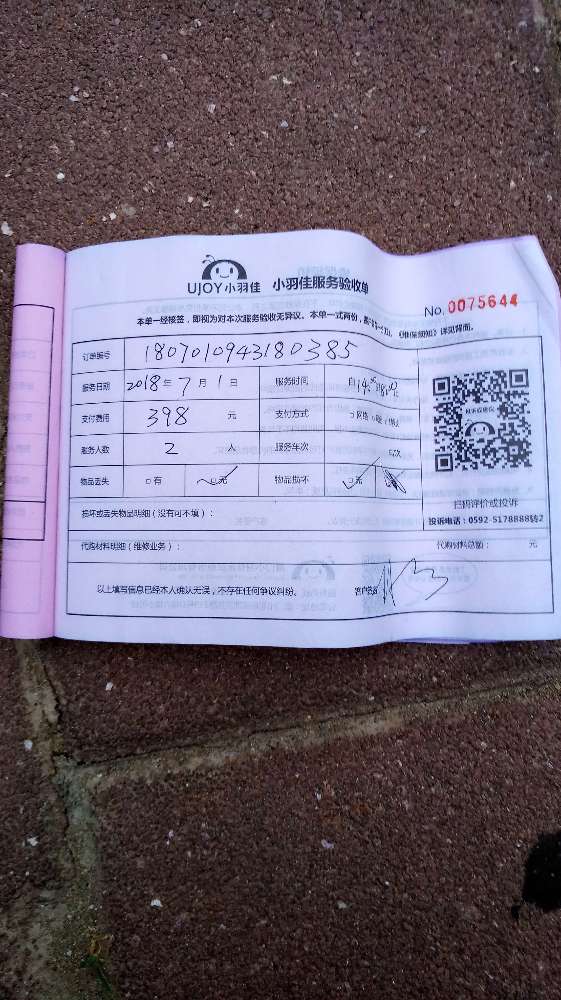 UJOY小羽佳 小羽佳服务验收单
No. 0075644
本单一经核签，即视为对本次服务验收无异议。本单一式两份，《维保须知》详见背面。
订单编号 1807010943180385
服务日期 2018年7月1日 服务时间 自14:00 18:00
支付费用 398 元 支付方式
服务人数 2 人 服务车次 次
物品丢失 有 无 物品损坏 无
扫码评价或投诉
投诉电话：0592-5178888转2
损坏或丢失物品明细（没有可不填）：
代购材料明细（维修业务）： 代购材料总额： 元
以上填写信息已经本人确认无误，不存在任何争议纠纷。 客户签名